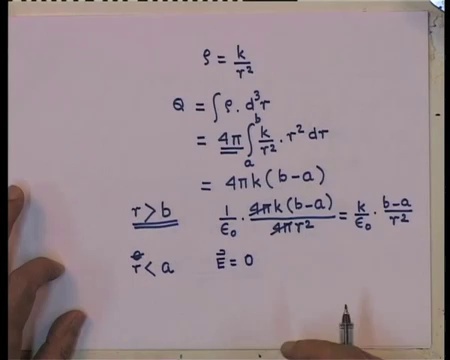 ρ = k/r²
Q = ∫ ρ. d³r
= 4π ∫ₐᵇ k/r² · r² dr
= 4πk(b-a)
r > b    1/ε₀ · 4πk(b-a)/4πr² = k/ε₀ · b-a/r²
r < a    E⃗ = 0